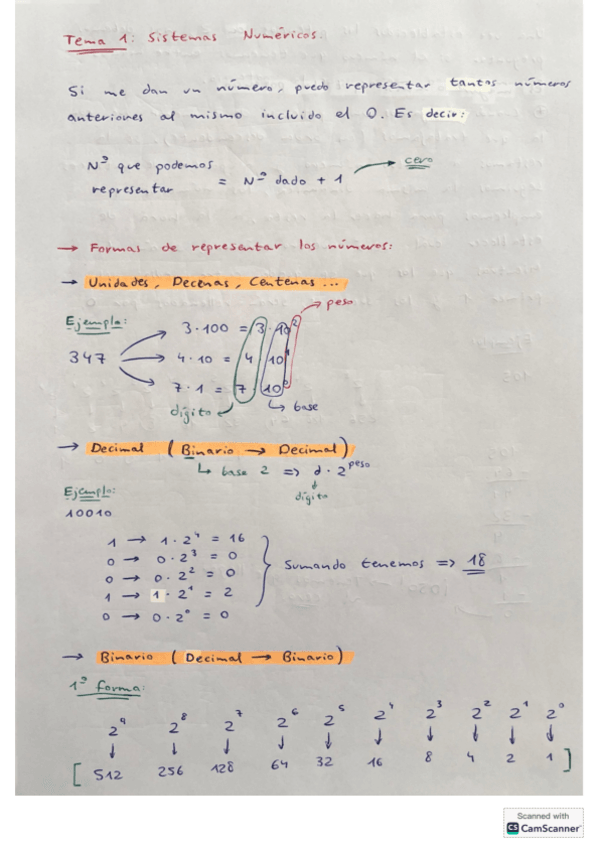 Tema 1: Sistemas Numéricos.
Si me dan un número, puedo representar tantos números
anteriores al mismo incluido el 0. Es decir:
Nº que podemos representar = Nº dado + 1 → cero
→ Formas de representar los números:
→ Unidades, Decenas, Centenas ...
Ejemplo:
347
→ peso
3·100 = 3·10²
4·10 = 4 10¹
7·1 = 7·10⁰
dígito
base
→ Decimal (Binario → Decimal)
↳ base 2 => d·2^peso
dígito
Ejemplo:
10010
1 → 1·2⁴ = 16
0 → 0·2³ = 0
0 → 0·2² = 0
1 → 1·2¹ = 2
0 → 0·2⁰ = 0
Sumando tenemos => 18
→ Binario (Decimal → Binario)
1ª forma:
2⁹ 2⁸ 2⁷ 2⁶ 2⁵ 2⁴ 2³ 2² 2¹ 2⁰
↓ ↓ ↓ ↓ ↓ ↓ ↓ ↓ ↓ ↓
[512 256 128 64 32 16 8 4 2 1]
Scanned with
CS CamScanner